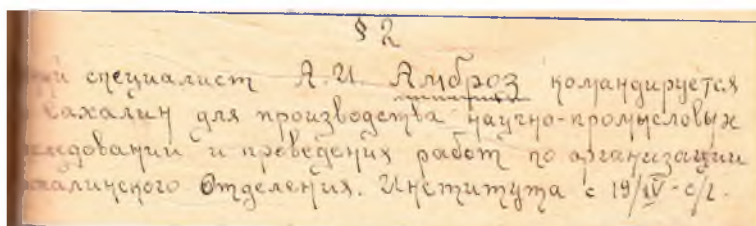 § 2
специалист А.И. Амброз командируется
Сахалин для производства научно-промысловых
следований и проведения работ по организации
халинского Отделения. Института с 19/IV - с/г.